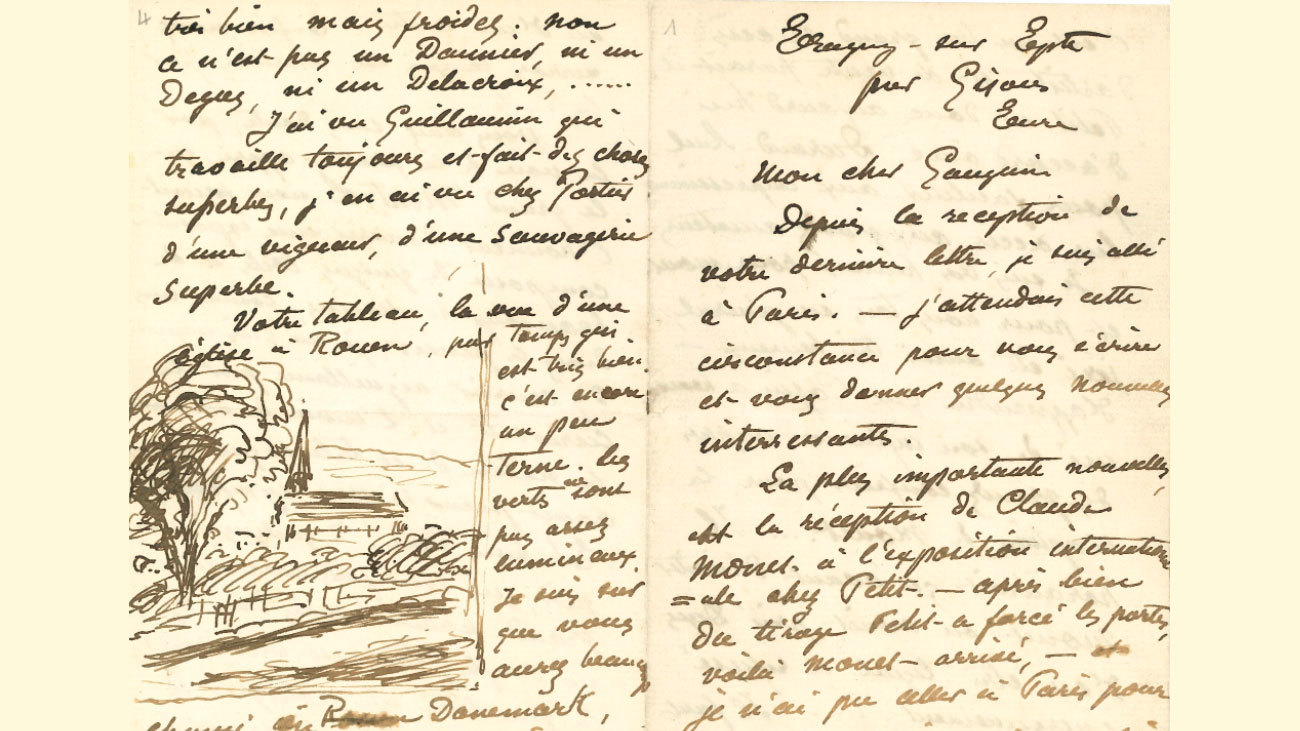 4
très bien mais froides. non
ce n'est pas un Daumier, ni un
Degas, ni un Delacroix, ......
J'ai vu Guillaumin qui
travaille toujours et fait des choses
superbes, j'en ai vu chez Portier
d'une vigueur, d'une sauvagerie
superbe.
Votre tableau, la vue d'une
église à Rouen, par temps gris
est très bien.
c'est encore
un peu
terne. les
verts ne sont
pas assez
lumineux.
Je suis sur
que vous
aurez beaucoup
en Danemark,
1
Eragny-sur Epte
par Gisors
Eure
Mon cher Gauguin
Depuis la reception de
votre dernière lettre, je suis allé
à Paris. — j'attendais cette
circonstance pour vous écrire
et vous donner quelques nouvelles
interressantes.
La plus importante nouvelle,
est la réception de Claude
Monet à l'exposition internation
=ale chez Petit. — après bien
du tirage Petit a forcé les portes,
voilà Monet arrivé, — et
je n'ai pu aller à Paris pour